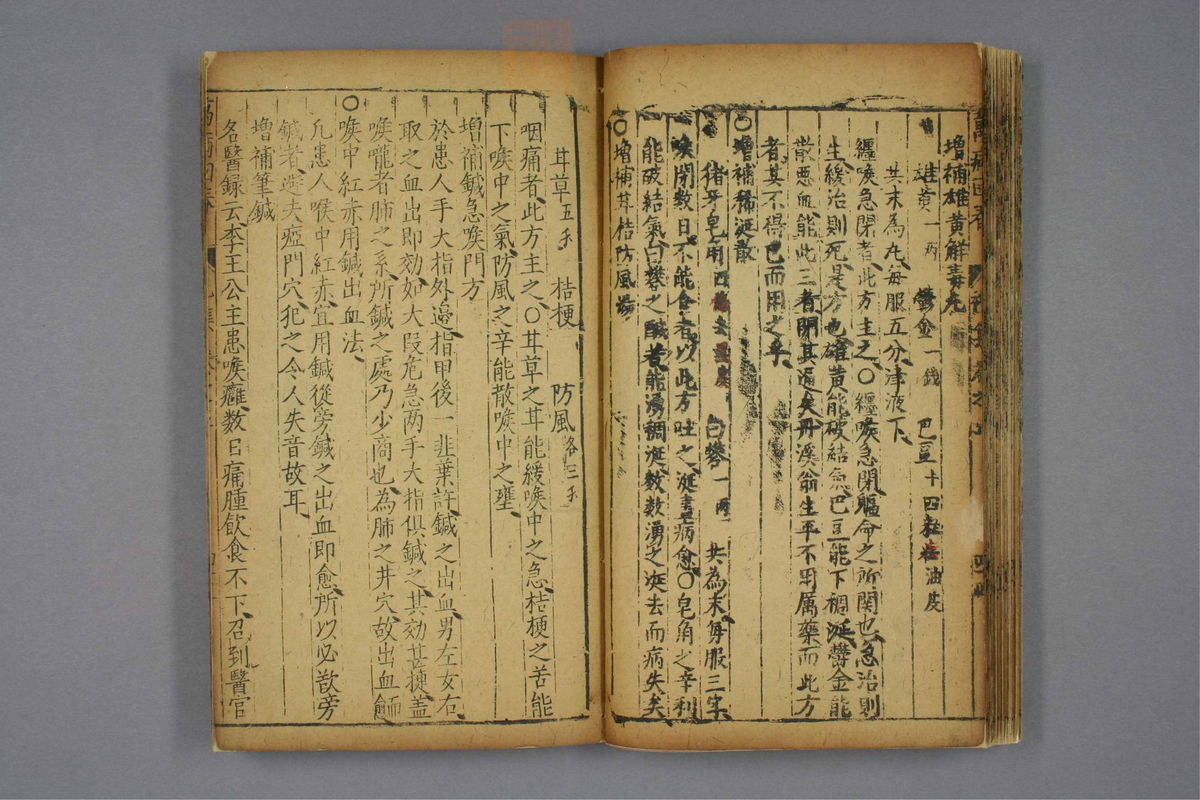 增補雄黃解毒丸
雄黃一兩 鬱金一錢 巴豆十四粒 油皮
共末為丸每服五分津液下
纏喉急閉者此方主之〇纏喉急閉軀命之所關也急治則
生緩治則死是方也雄黃能破結氣巴豆能下稠涎鬱金能
散惡血能此三者閉其通矣丹溪翁生平不用厲藥而此方
者其不得已而用之乎
〇增補稀涎散
猪牙皂用四 白礬一兩 共為末每服三字
喉閉數日不能食者以此方吐之涎盡病愈〇皂角之辛利
能破結氣白礬之鹹者能湧稠涎數數湧之涎去而病失矣
〇增補甘桔防風湯
甘草五分 桔梗 防風各三分
咽痛者此方主之〇甘草之甘能緩喉中之急桔梗之苦能
下喉中之氣防風之辛能散喉中之壅
增補鍼急喉門方
於患人手大指外邊指甲後一韭葉許鍼之出血男左女右
取之血出即効如大段危急两手大指俱鍼之其効甚捷盖
喉嚨者肺之系所鍼之處乃少商也為肺之井穴故出血師
〇喉中紅赤用鍼出血法
凢患人喉中紅赤宜用鍼從旁鍼之出血即愈所以必欲旁
鍼者避夫瘂門穴犯之令人失音故耳
增補筆鍼
名醫録云李王公主患喉癰数日痛腫飲食不下召到醫官